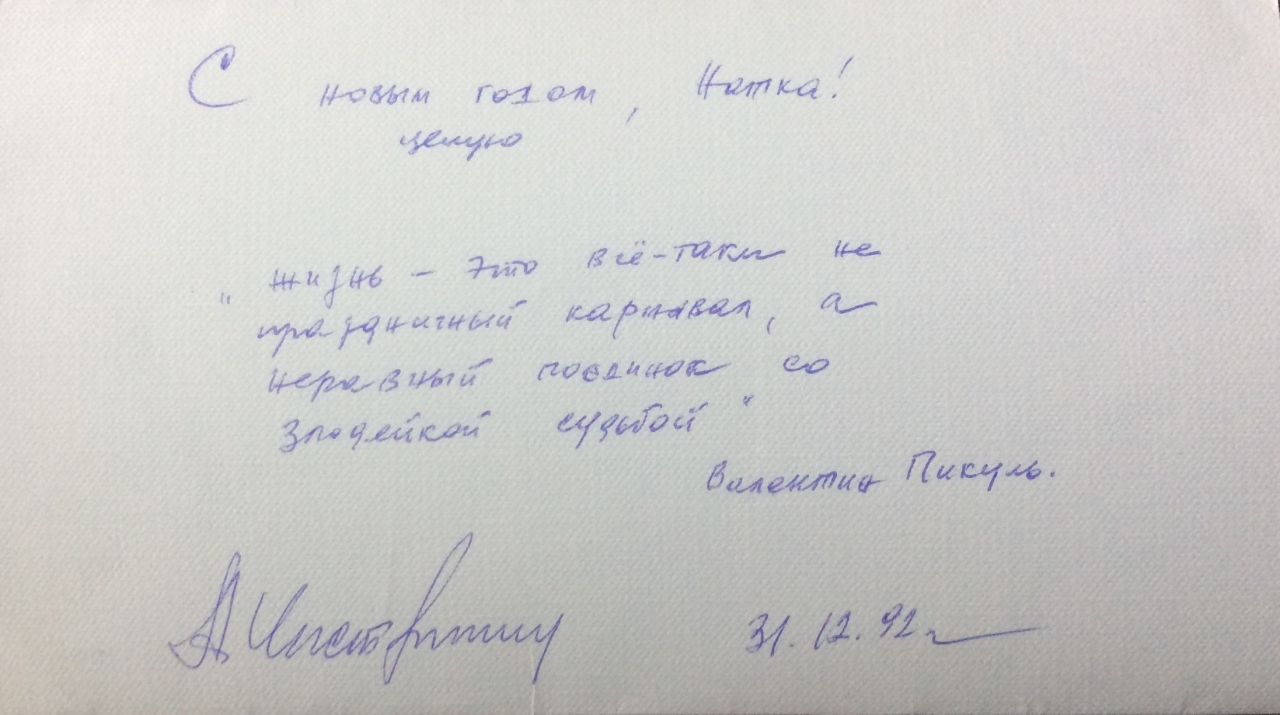 С новым годом, Натка!
целую
"Жизнь - это всё-таки не
праздничный карнавал, а
неравный поединок со
злодейкой судьбой"
Валентин Пикуль.
31.12.92г